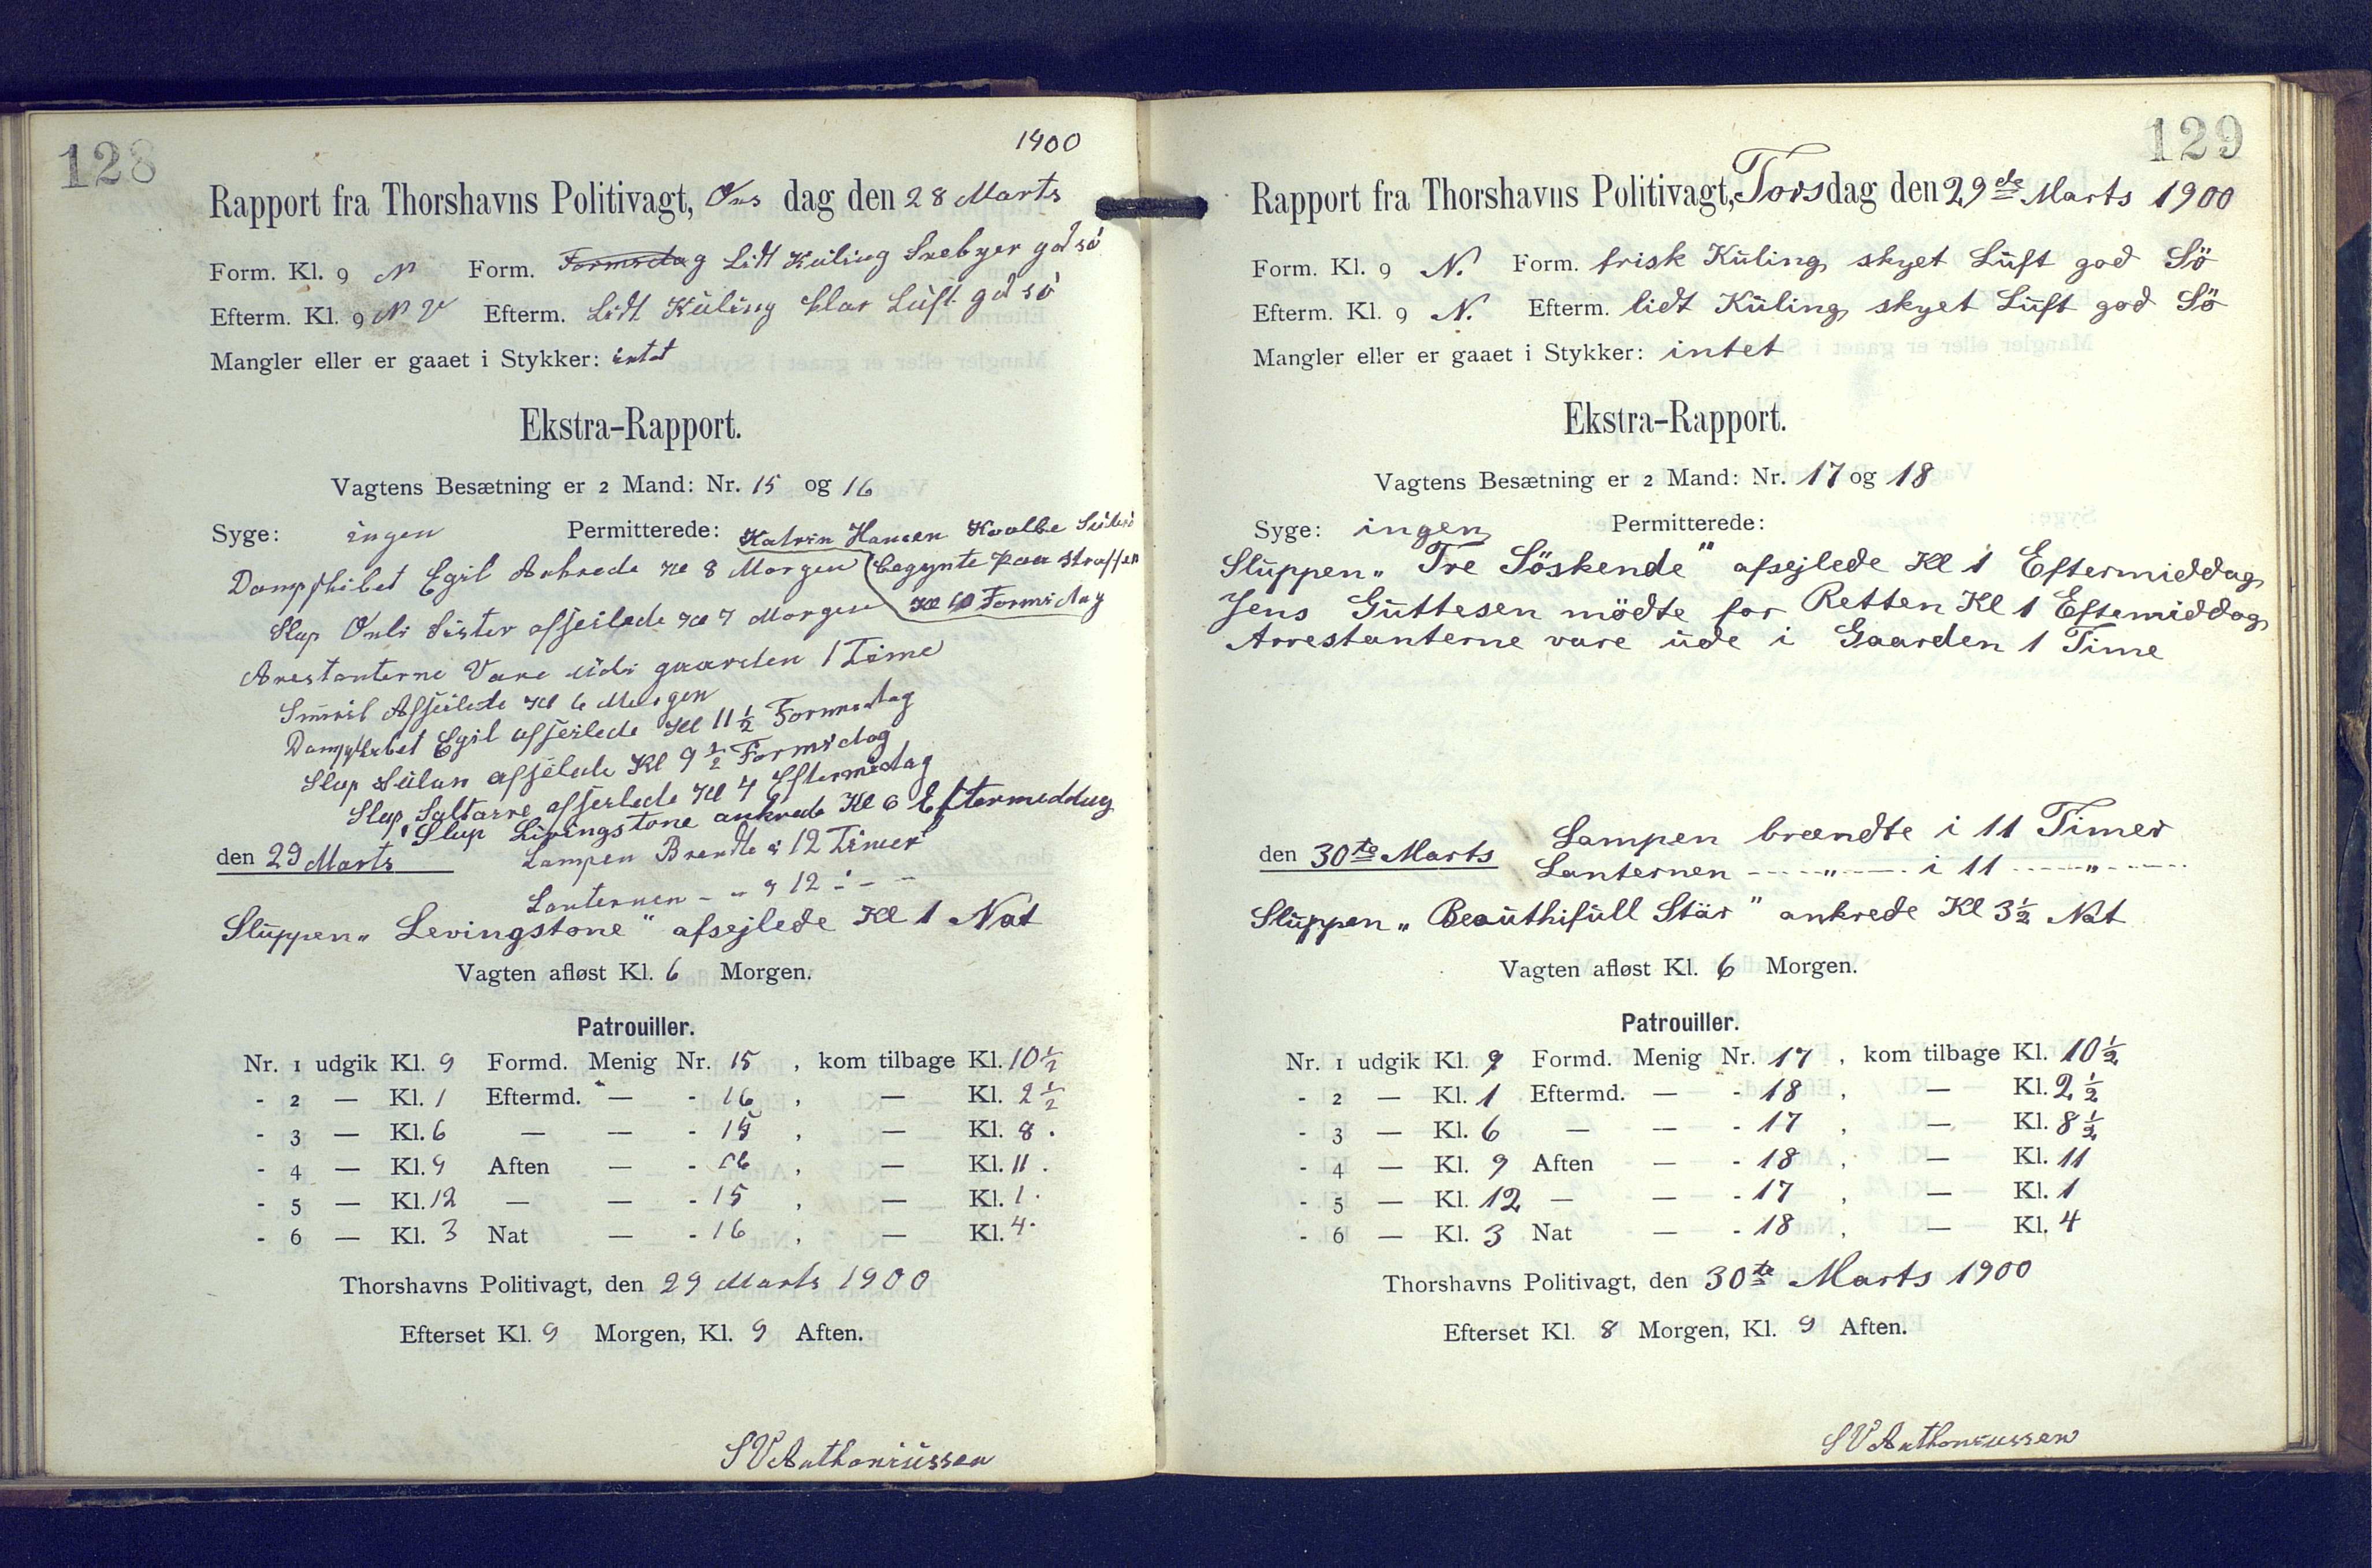 128
1900
Rapport fra Thorshavns Politivagt, Ons dag den 28 Marts
Form. Kl. 9 N Form. Formidag Lidt Kuling Snebyer god sö
Efterm. Kl. 9 NV Efterm. Lidt Kuling klar Luft god sö
Mangler eller er gaaet i Stykker: intet
Ekstra-Rapport.
Vagtens Besætning er 2 Mand: Nr. 15 og 16
Syge: ingen Permitterede: Katrin Hansen Kvalbe Suderö
begynte paa straffen
Kl 10 Formidag
Dampskibet Egil Ankrede Kl 8 Morgen
Slup Onli Sister afseilede Kl 7 Morgen
Arestanterne Vare udi gaarden 1 Time
Smiril Afseilede Kl 6 Morgen
Dampskibet Egil afseilede Kl 11½ Formidag
Slup Sulan afseilede Kl 9½ Formidag
Slup Saltarre afseilede Kl 4 Eftermidag
Slup Livingstone ankrede Kl 6 Eftermeddag
den 29 Marts Lampen Brendte i 12 Timer
Lanternen - " i 12 - - -
Sluppen „Levingstone“ afsejlede Kl 1 Nat
Vagten afløst Kl. 6 Morgen.
Patrouiller.
Nr. 1 udgik Kl. 9 Formd. Menig Nr. 15, kom tilbage Kl. 10½
- 2 — Kl. 1 Eftermd. — - 16, — Kl. 2½
- 3 — Kl. 6 — — - 15, — Kl. 8.
- 4 — Kl. 9 Aften — - 16, — Kl. 11.
- 5 — Kl. 12 — — - 15, — Kl. 1.
- 6 — Kl. 3 Nat — - 16, — Kl. 4.
Thorshavns Politivagt, den 29 Marts 1900
Efterset Kl. 9 Morgen, Kl. 9 Aften.
SV Anthoniussen
129
Rapport fra Thorshavns Politivagt, Torsdag den 29de Marts 1900
Form. Kl. 9 N. Form. frisk Kuling skyet Luft god Sö
Efterm. Kl. 9 N. Efterm. lidt Kuling skyet Luft god Sö
Mangler eller er gaaet i Stykker: intet
Ekstra-Rapport.
Vagtens Besætning er 2 Mand: Nr. 17 og 18
Syge: ingen Permitterede:
Sluppen „Tre Söskende“ afsejlede Kl 1 Eftermiddag
Jens Guttesen mödte for Retten Kl 1 Eftemiddag
Arrestanterne vare ude i Gaarden 1 Time
den 30te Marts Lampen brændte i 11 Timer
Lanternen ---- „ ---- i 11 ---- „ ----
Sluppen „Beauthifull Stär“ ankrede Kl 3½ Nat
Vagten afløst Kl. 6 Morgen.
Patrouiller.
Nr. 1 udgik Kl. 9 Formd. Menig Nr. 17, kom tilbage Kl. 10½
- 2 — Kl. 1 Eftermd. — - 18, — Kl. 2½
- 3 — Kl. 6 — — - 17, — Kl. 8½
- 4 — Kl. 9 Aften — - 18, — Kl. 11
- 5 — Kl. 12 — — - 17, — Kl. 1
- 6 — Kl. 3 Nat — - 18, — Kl. 4
Thorshavns Politivagt, den 30te Marts 1900
Efterset Kl. 8 Morgen, Kl. 9 Aften.
SV Anthoniussen